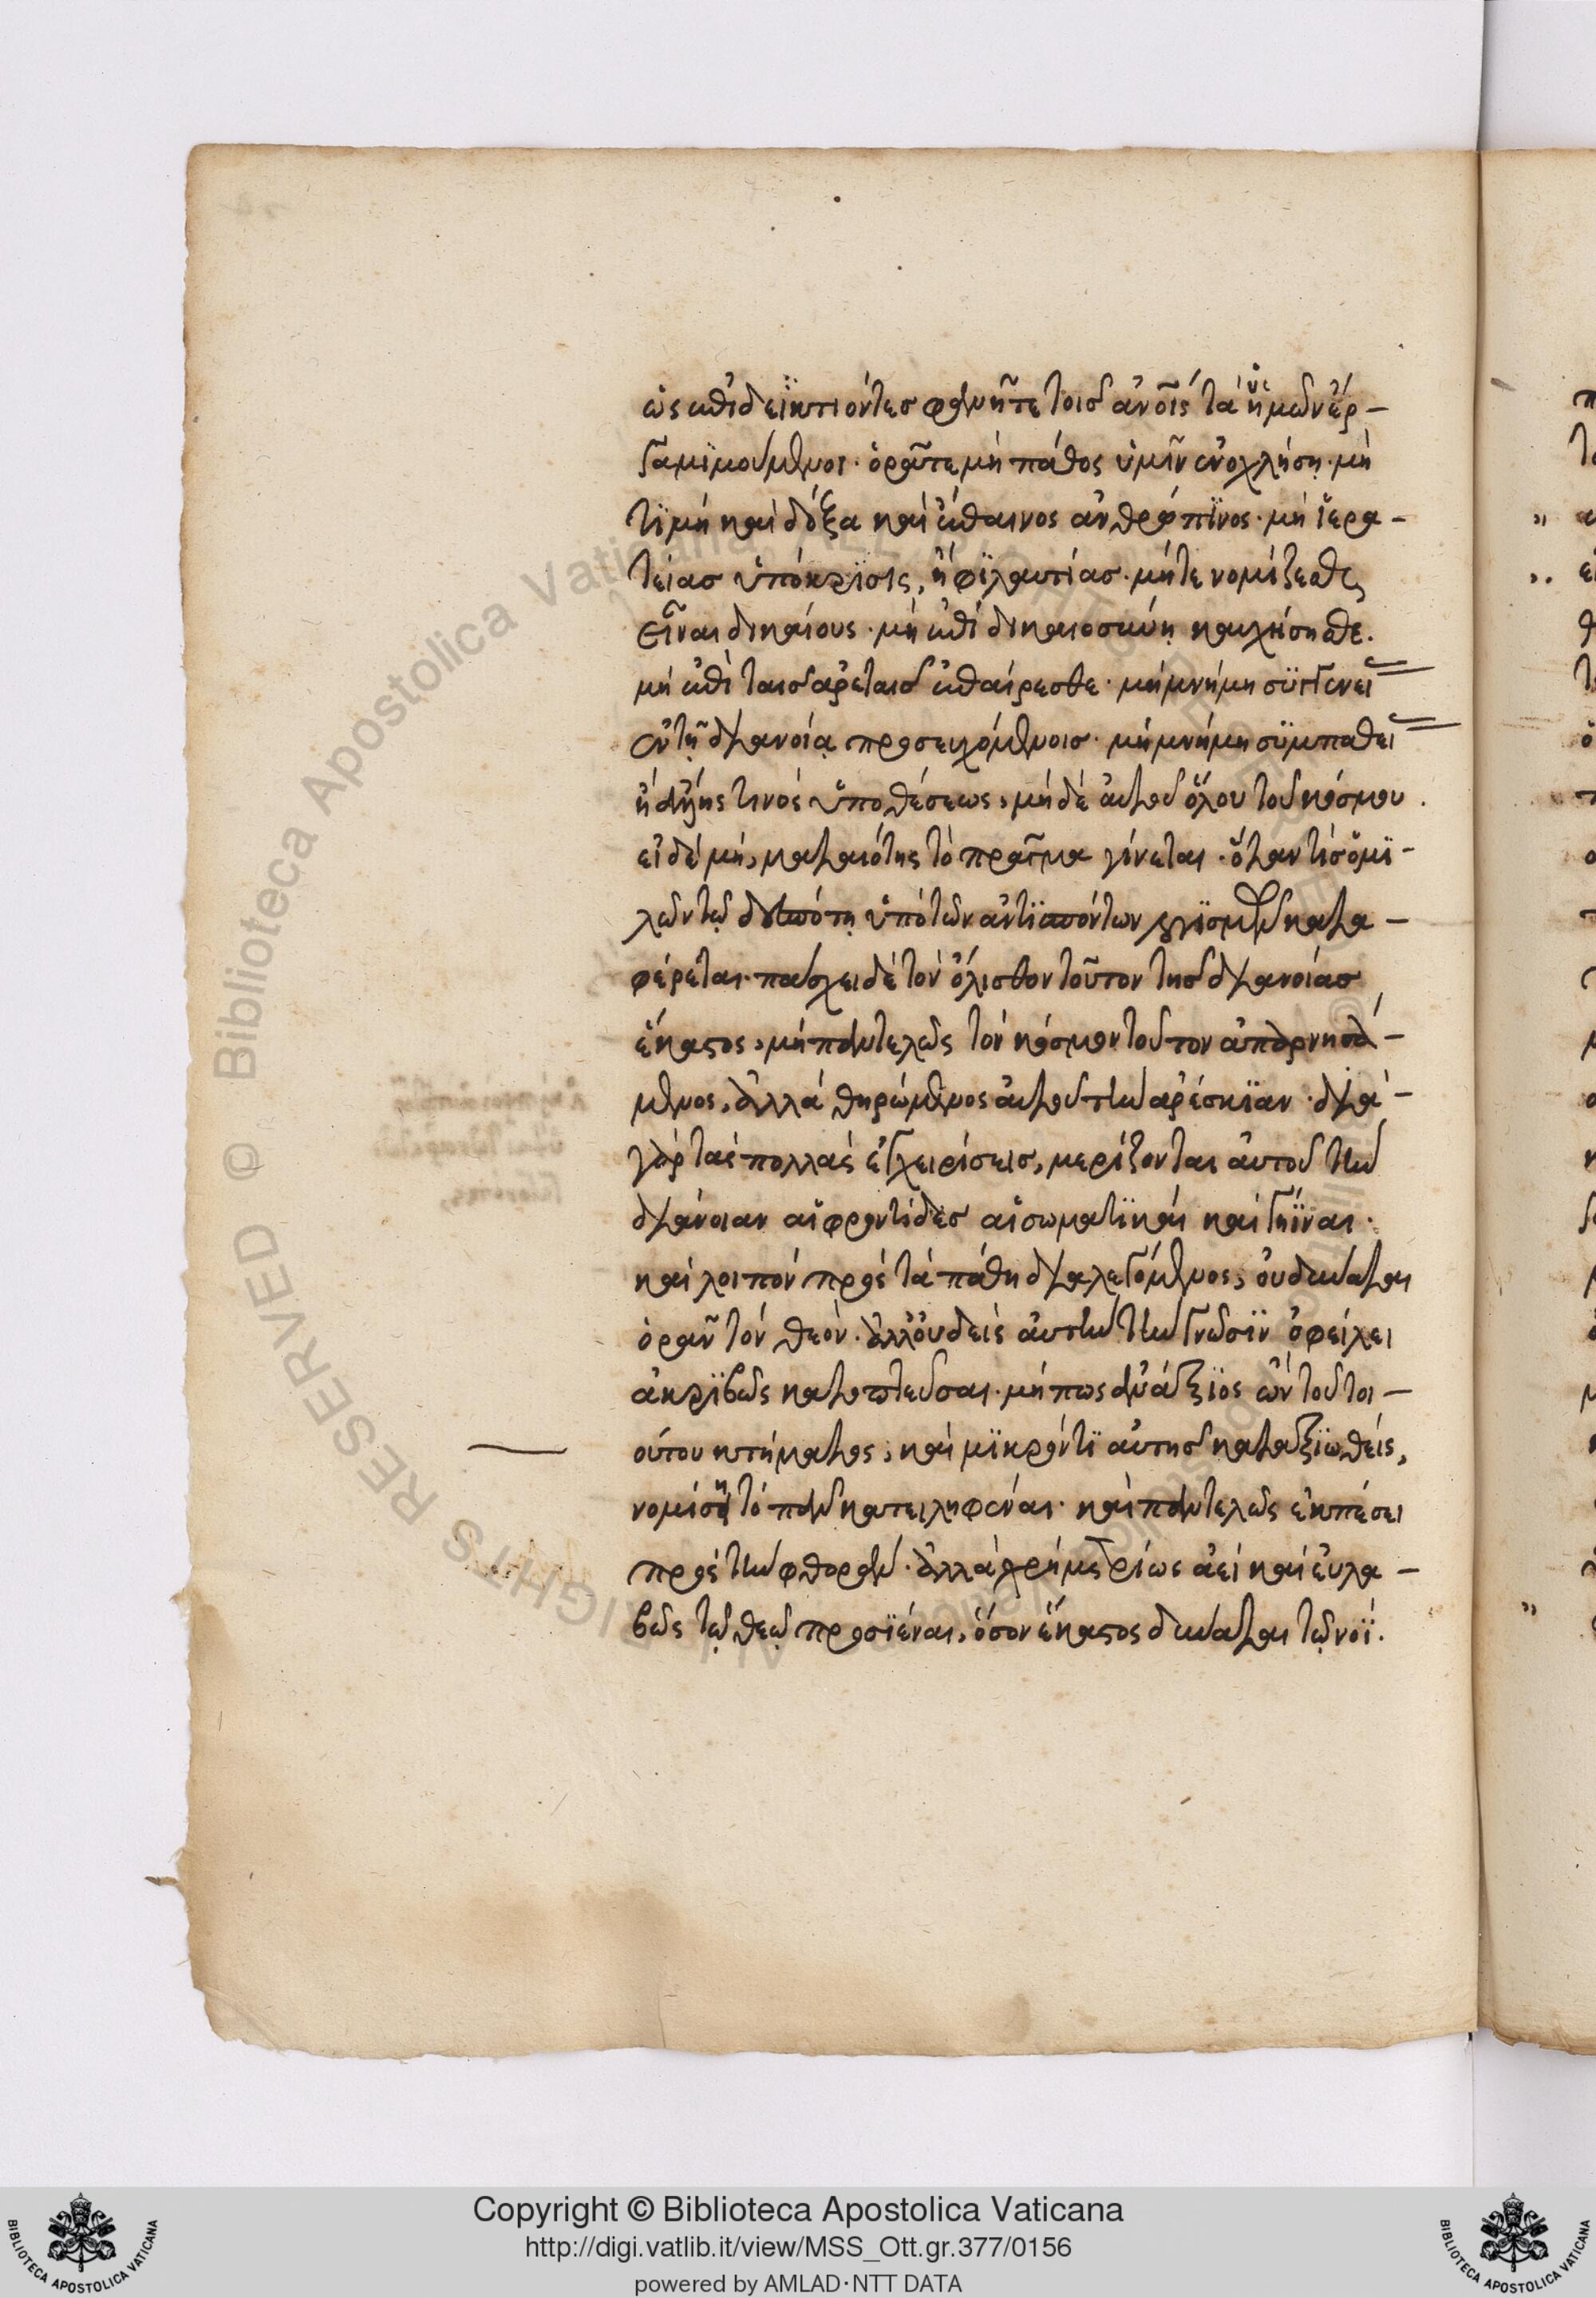 ὡς ἐπιδεϊκτιόντες φανῆτε τοῖς ἀνοῖς τὰ ἡμῶν ἔρ-
γα μϊμούμενοι· ὁρᾶτε μὴ πάθος ὑμῖν ἐνοχλήσῃ· μὴ
τϊμὴ καὶ δόξα καὶ ἔπαινος ἀνθρώπϊνος· μὴ ἱερα-
τείας ὑπόκρϊσις, ἢ φϊλαυτίας· μήτε νομίζεσθε
εἶναι δικαίους· μὴ ἐπὶ δικαιοσύνῃ καυχήσησθε.
μὴ ἐπὶ ταῖς ἀρεταῖς ἐπαίρεσθε· μὴ μνήμη συγγενεῖ
ἐν τῇ διανοίᾳ προσευχόμενοις· μὴ μνήμη σϋμπαθεῖ
ἢ ἄλλης τινὸς ὑποθέσεως, μὴ δὲ αὐτοῦ ὅλου τοῦ κόσμου.
εἰ δὲ μὴ, ματαιότης τὸ πρᾶγμα γίνεται· ὅταν τίς ὁμϊ-
λῶν τῷ δεσπότῃ ὑπὸ τῶν ἀντϊπιπόντων λογϊσμῶν κατα-
φέρεται· πάσχει δὲ τὸν ὄλισθον τοῦτον τῆς διανοίας
ἕκαστος, μὴ παντελῶς τὸν κόσμον τοῦτον ἀπαρνησά-
μενος, ἀλλὰ θηρώμενος αὐτοῦ τὴν ἀρέσκϊαν· διὰ
γὰρ τὰς πολλὰς ἐγχειρίσεις, μερίζονται αὐτοῦ τὴν
διάνοιαν αἱ φροντίδες αἱ σωματϊκαὶ καὶ γήϊναι·
καὶ λοιπὸν πρὸς τὰ πάθη διαλεγόμενος, οὐ δύναται
ὁρᾶν τὸν θεόν· ἀλλ' οὐδεὶς αὐτὴν τὴν γνῶσϊν ὀφείλει
ἀκρϊβῶς κατοπτεῦσαι· μήπως ἀνάξϊος ὢν τοῦ τοι-
ούτου κτήματος, καὶ μϊκρόν τϊ αὐτῆς καταξϊωθεὶς,
νομίσῃ τὸ πᾶν κατειληφέναι· καὶ παντελῶς ἐκπέσει
πρὸς τὴν φθοράν· ἀλλὰ χρὴ μετρίως ἀεὶ καὶ εὐλα-
βῶς τῷ θεῷ προσϊέναι, ὅσον ἕκαστος δύναται τῷ νοΐ.
Copyright © Biblioteca Apostolica Vaticana
http://digi.vatlib.it/view/MSS_Ott.gr.377/0156
powered by AMLAD·NTT DATA